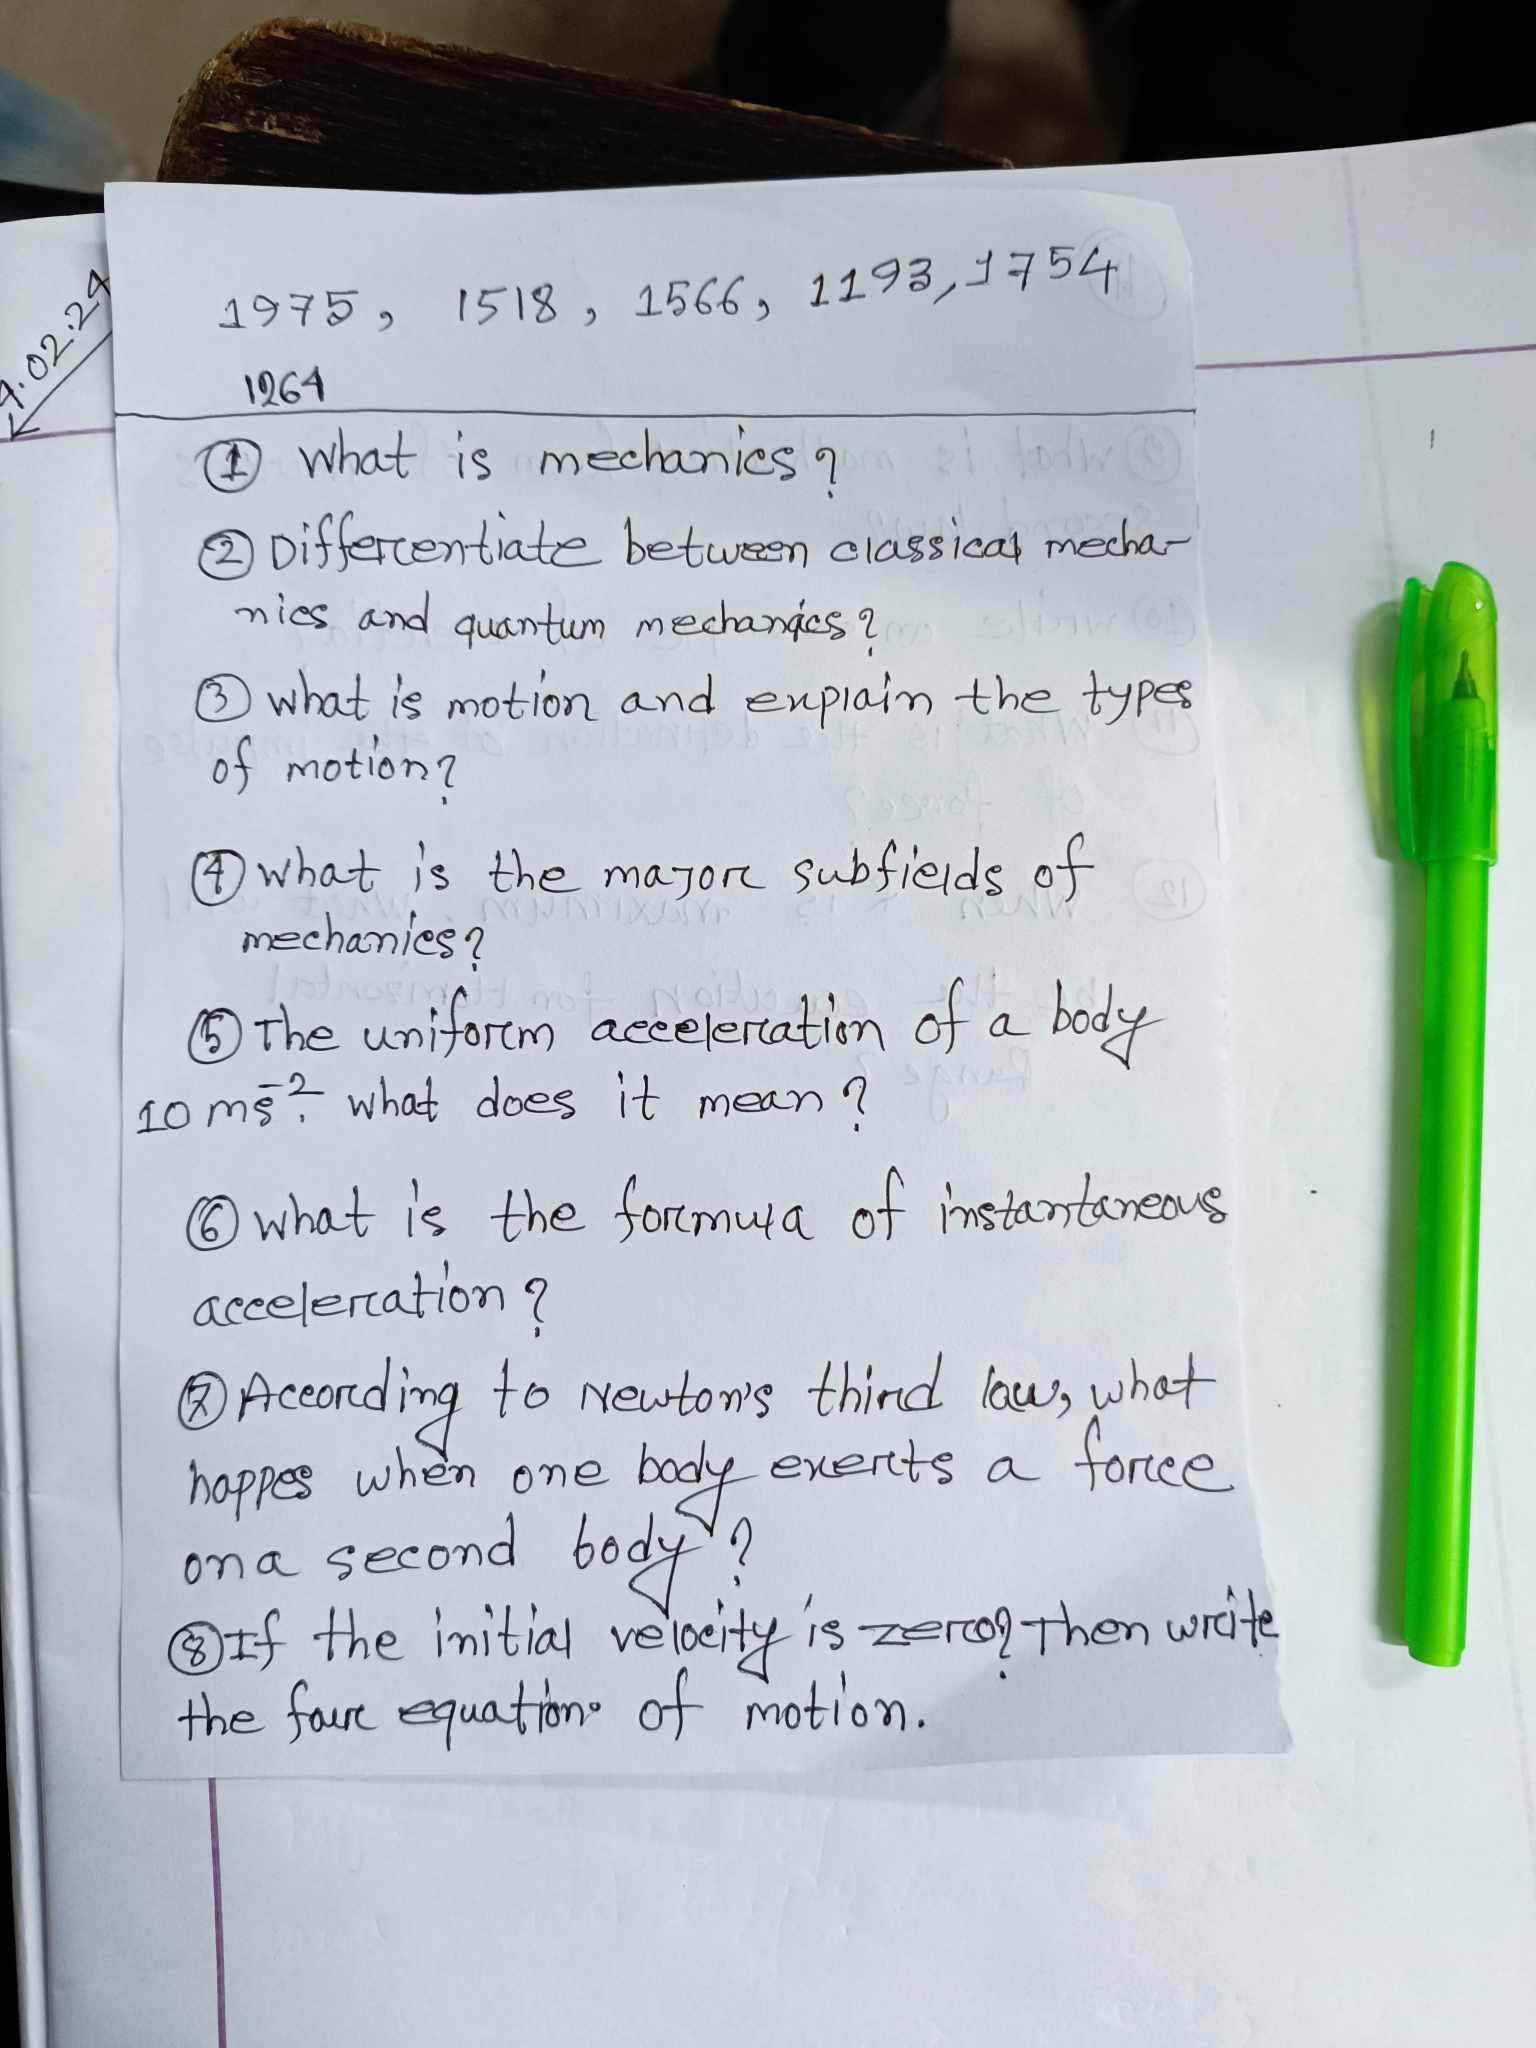 1975, 1518, 1566, 1193, 1754
1264
.02.24
① What is mechanics?
② Differentiate between classical mecha-
nics and quantum mechanics?
③ what is motion and explain the types
of motion?
④ what is the major subfields of
mechanics?
⑤ The uniform acceleration of a body
10 ms⁻². what does it mean?
⑥ what is the formula of instantaneous
acceleration?
⑦ According to Newton's third law, what
happes when one body exerts a force
on a second body?
⑧ If the initial velocity is zero? Then write
the four equations of motion.